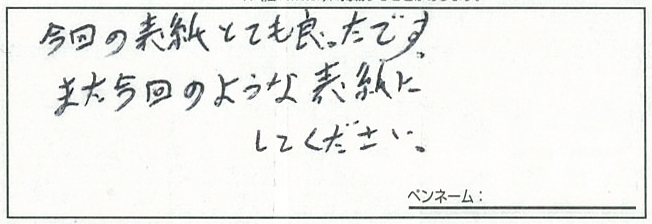 今回の表紙とても良ったです。
また今回のような表紙に
してください。
ペンネーム：